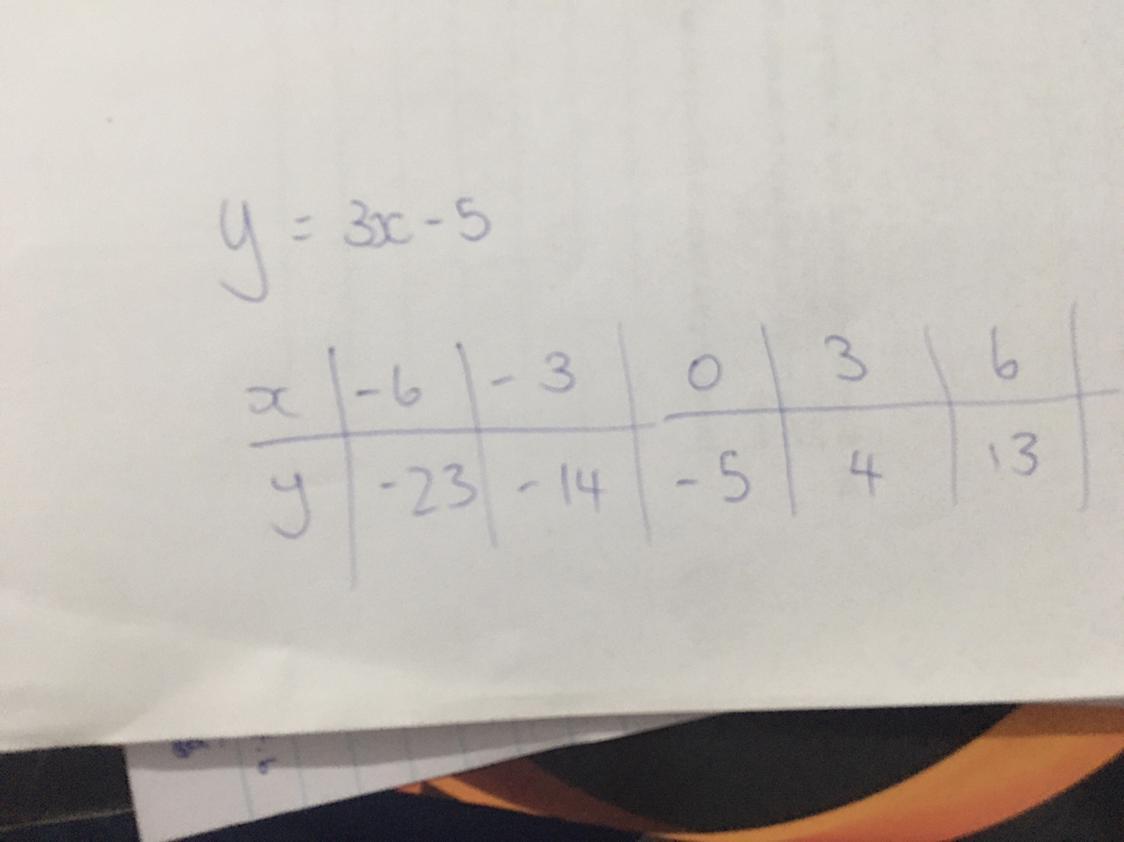 y = 3x - 5
x | -6 | -3 | 0 | 3 | 6 |
y | -23 | -14 | -5 | 4 | 13 |